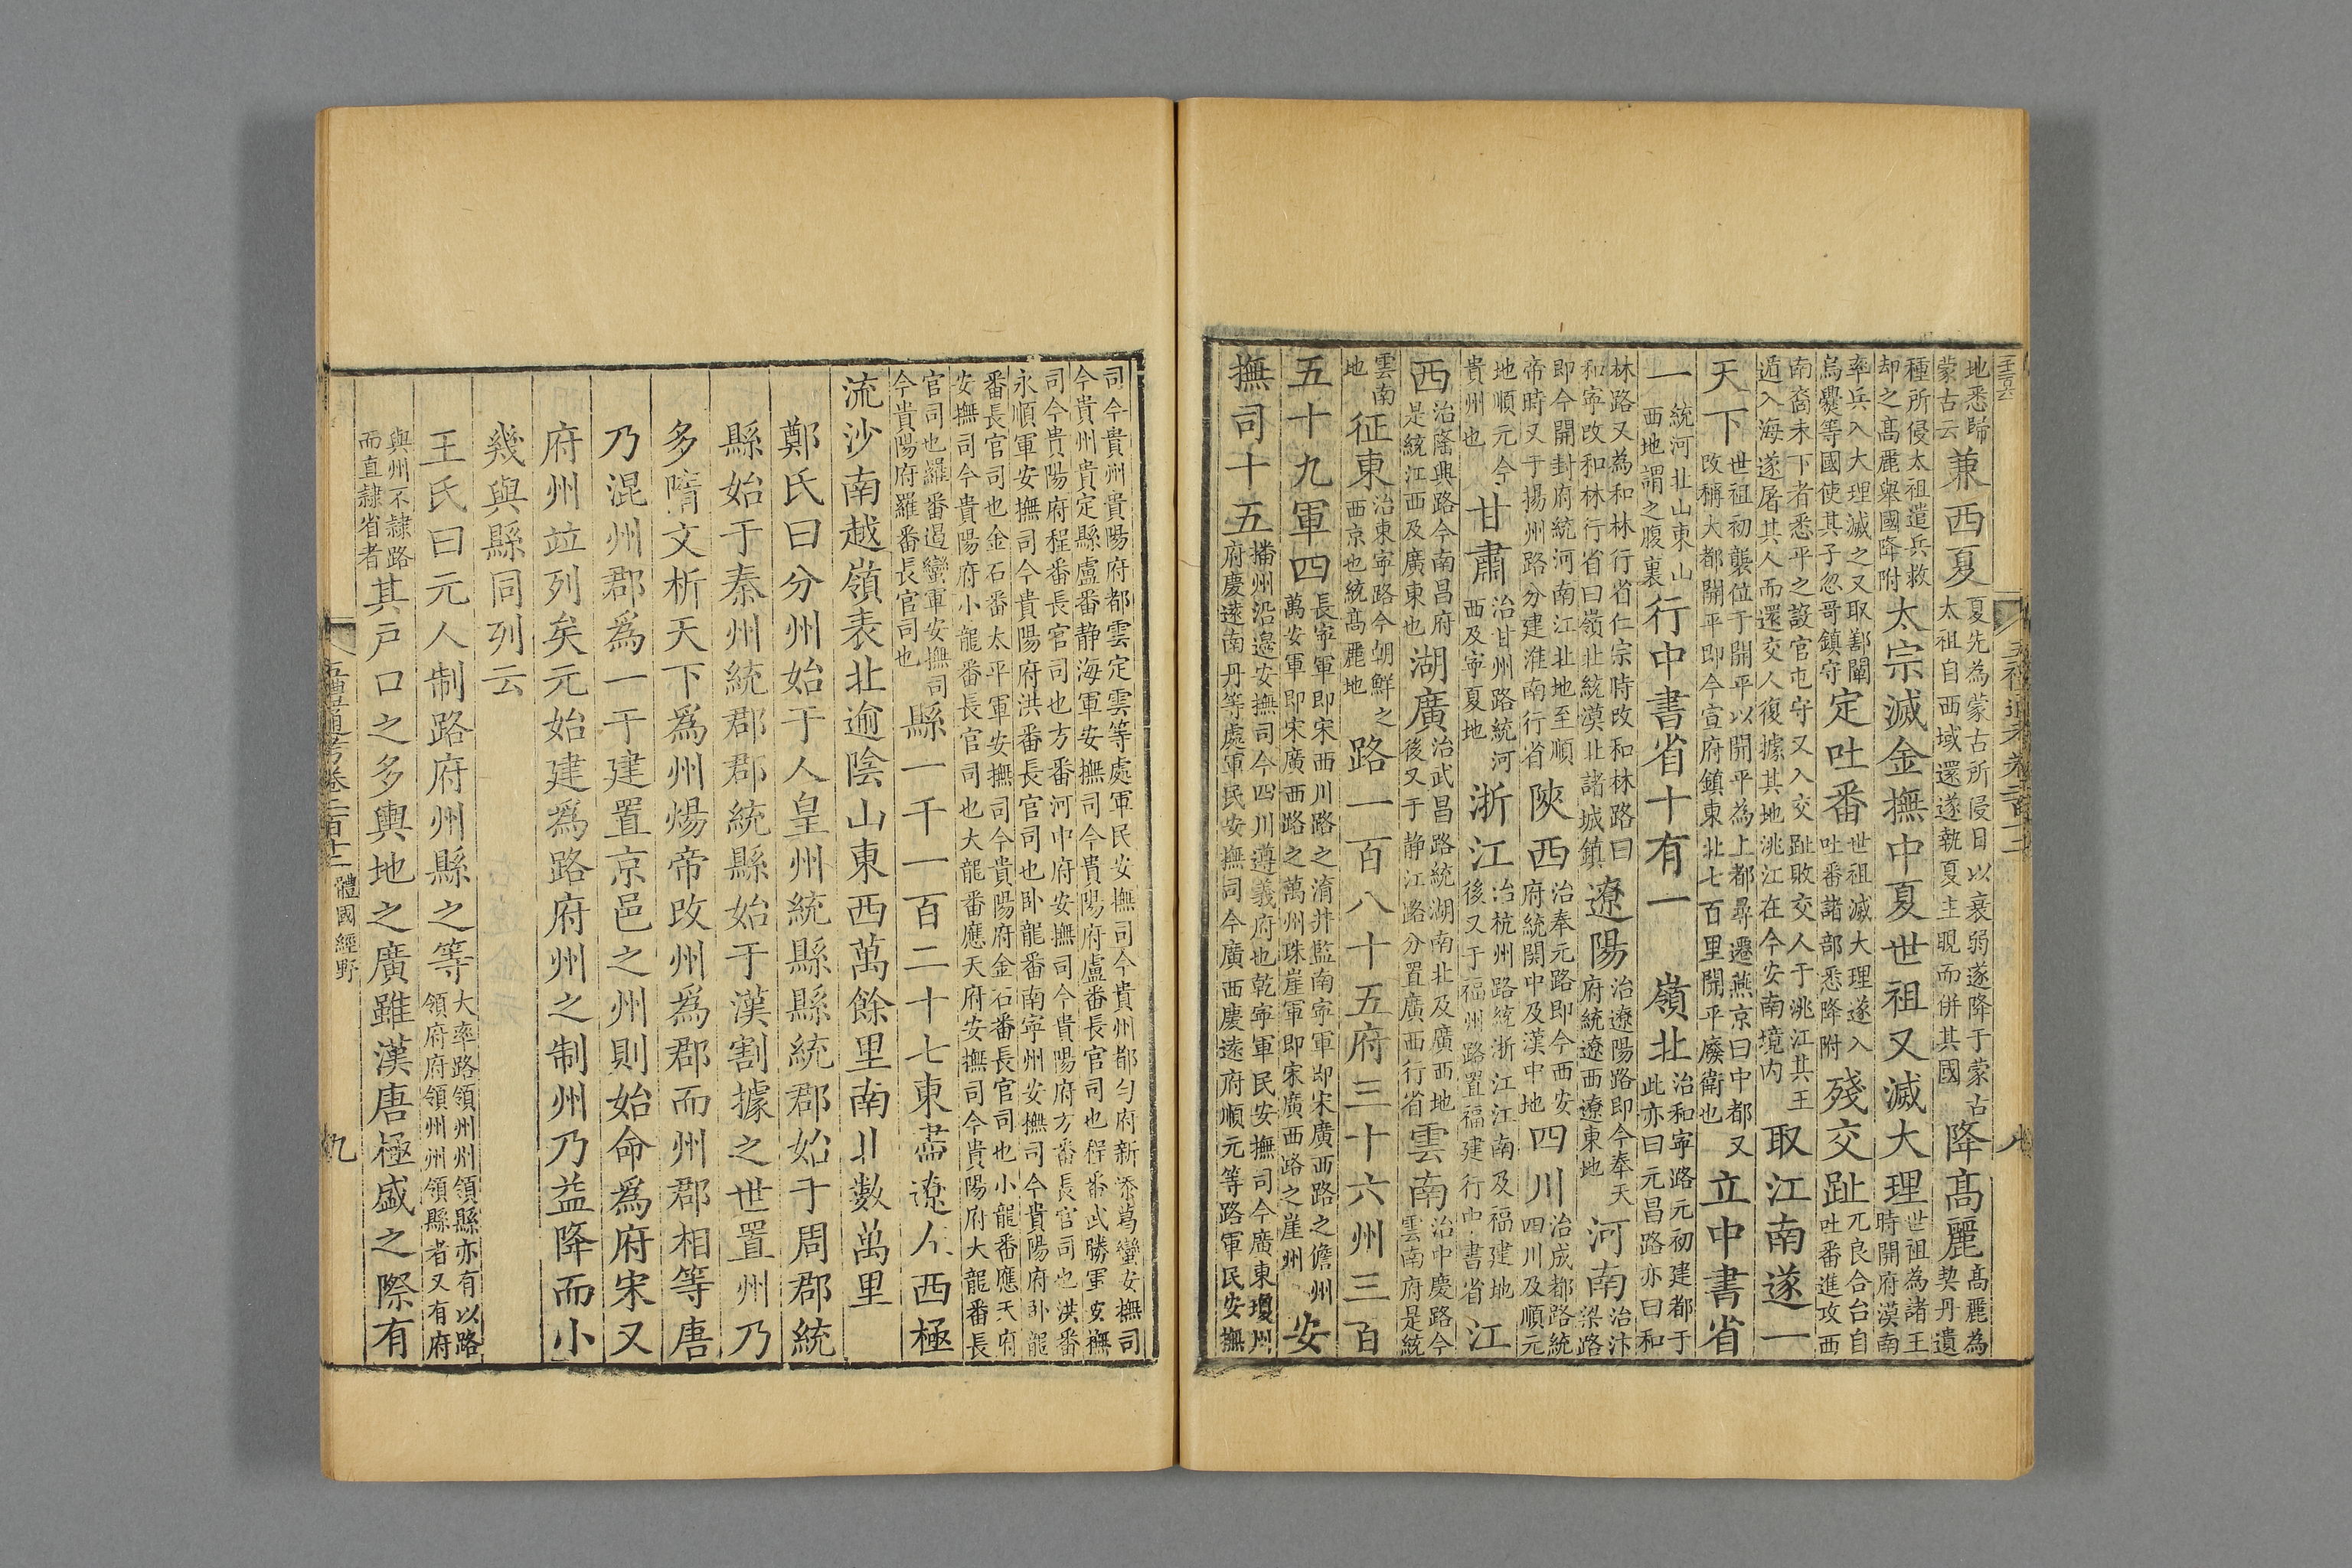 五禮通考卷二百十二 八
地悉歸蒙古云兼西夏夏先為蒙古所侵日以衰弱遂降于蒙古太祖自西域還遂執夏主睍而併其國降高麗高麗為契丹遺
種所侵太祖遣兵救却之高麗舉國降附太宗滅金撫中夏世祖又滅大理世祖為諸王時開府漠南
率兵入大理滅之又取鄯闡烏爨等國使其子忽哥鎮守定吐番世祖滅大理遂入吐番諸部悉降附殘交趾兀良合台自吐番進攻西
南裔未下者悉平之設官屯守又入交趾敗交人于洮江其王遁入海遂屠其人而還交人復據其地洮江在今安南境內取江南遂一
天下世祖初襲位于開平以開平為上都尋遷燕京曰中都又改稱大都開平即今宣府鎮東北七百里開平廢衛也立中書省
一統河北山東山西地謂之腹裏行中書省十有一 嶺北治和寧路元初建都于此亦曰元昌路亦曰和
林路又為和林行省仁宗時改和林路曰和寧改和林行省曰嶺北統漠北諸城鎮遼陽治遼陽路即今奉天府統遼西遼東地河南治汴梁路
即今開封府統河南江北地至順帝時又于揚州路分建淮南行省陝西治奉元路即今西安府統關中及漢中地四川治成都路統四川及順元
地順元今貴州也甘肅治甘州路統河西及寧夏地浙江治杭州路統浙江江南及福建地後又于福州路置福建行中書省江
西治隆興路今南昌府是統江西及廣東也湖廣治武昌路統湖南北及廣西地後又于静江路分置廣西行省雲南治中慶路今雲南府是統
雲南地征東治東寧路今朝鮮之西京也統高麗地路一百八十五府三十六州三百
五十九軍四長寧軍即宋西川路之淯井監南寧軍即宋廣西路之儋州萬安軍即宋廣西路之萬州珠崖軍即宋廣西路之崖州安
撫司十五播州沿邊安撫司今四川遵義府也乾寧軍民安撫司今廣東瓊州府慶遠南丹等處軍民安撫司今廣西慶遠府順元等路軍民安撫
司今貴州貴陽府都雲定雲等處軍民安撫司今貴州都勻府新添葛蠻安撫司今貴州貴定縣盧番静海軍安撫司今貴陽府盧番長官司也程番武勝軍安撫
司今貴陽府程番長官司也方番河中府安撫司今貴陽府方番長官司也洪番永順軍安撫司今貴陽府洪番長官司也卧龍番南寧州安撫司今貴陽府卧龍
番長官司也金石番太平軍安撫司今貴陽府金石番長官司也小龍番應天府安撫司今貴陽府小龍番長官司也大龍番應天府安撫司今貴陽府大龍番長
官司也羅番遏蠻軍安撫司今貴陽府羅番長官司也縣一千一百二十七東盡遼左西極
流沙南越嶺表北逾陰山東西萬餘里南北數萬里
鄭氏曰分州始于人皇州統縣縣統郡始于周郡統
縣始于秦州統郡郡統縣始于漢割據之世置州乃
多隋文析天下爲州煬帝改州爲郡而州郡相等唐
乃混州郡爲一于建置京邑之州則始命爲府宋又
府州竝列矣元始建爲路府州之制州乃益降而小
幾與縣同列云
王氏曰元人制路府州縣之等大率路領州州領縣亦有以路領府府領州州領縣者又有府
與州不隸路而直隸省者其戶口之多輿地之廣雖漢唐極盛之際有
五禮通考卷二百十二 體國經野 九